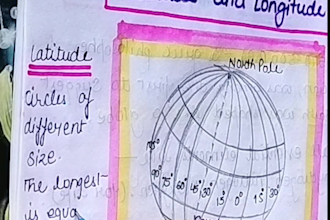 and Longitude
Latitude
North Pole
Circles of
different
size.
The longest
is equa
90° 75° 60° 45° 30° 15° 0° 15 30°